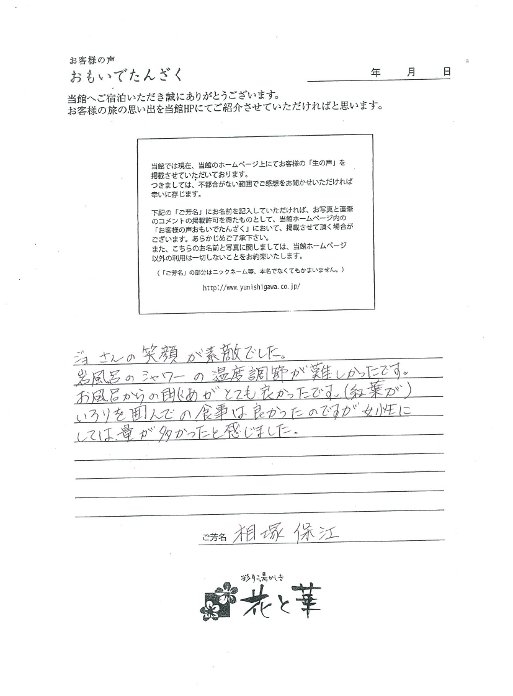 お客様の声
おもいでたんざく
年 月 日
当館へご宿泊いただき誠にありがとうございます。
お客様の旅の思い出を当館HPにてご紹介させていただければと思います。
当館では現在、当館のホームページ上にてお客様の「生の声」を
掲載させていただいております。
つきましては、不都合がない範囲でご感想をお聞かせいただければ
幸いに存じます。
下記の「ご芳名」にお名前を記入していただければ、お写真と直筆
のコメントの掲載許可を得たものとして、当館ホームページ内の
「お客様の声おもいでたんざく」において、掲載させて頂く場合が
ございます。あらかじめご了承下さい。
また、こちらのお名前と写真に関しましては、当館ホームページ
以外の利用は一切しないことをお約束いたします。
(「ご芳名」の部分はニックネーム等、本名でなくてもかまいません。)
http://www.yunishigawa.co.jp/
ジョさんの笑顔が素敵でした。
岩風呂のシャワーの温度調節が難しかったです。
お風呂からの眺めがとても良かったです。(紅葉が)
いろりを囲んでの食事は良かったのですが女性に
しては量が多かったと感じました。
ご芳名 相塚 保江
彩り湯かしき
花と華